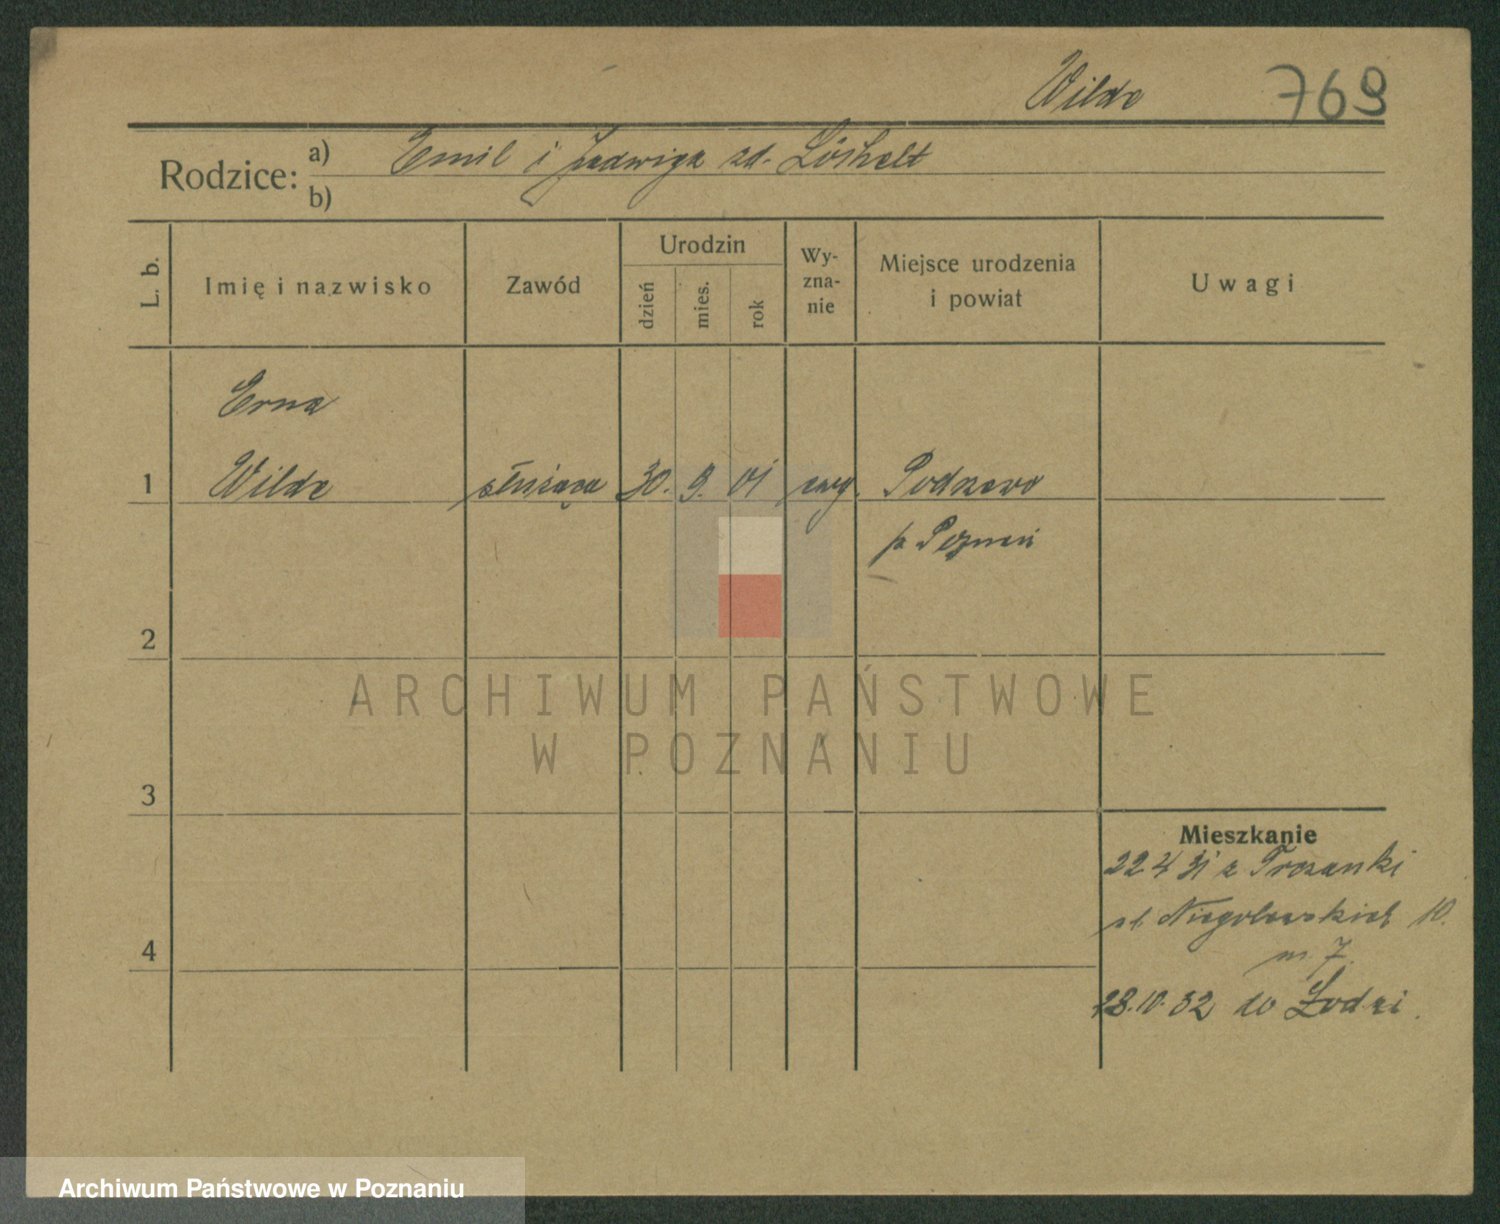 Wilde 769
Rodzice:
a) Emil i Jadwiga zd. Löshelt
b)
L. b.
Imię i nazwisko
Zawód
Urodzin
dzień
mies.
rok
Wy-
zna-
nie
Miejsce urodzenia
i powiat
Uwagi
Erna
1 Wilde służąca 30. 9. 01 ewg. Podrzewo
p. Poznań
2
3
4
Mieszkanie
22 4 31 z
ul. Niegolewskich 10.
m. 7.
28.10.32 do Łodzi.
ARCHIWUM PAŃSTWOWE
W POZNANIU
Archiwum Państwowe w Poznaniu